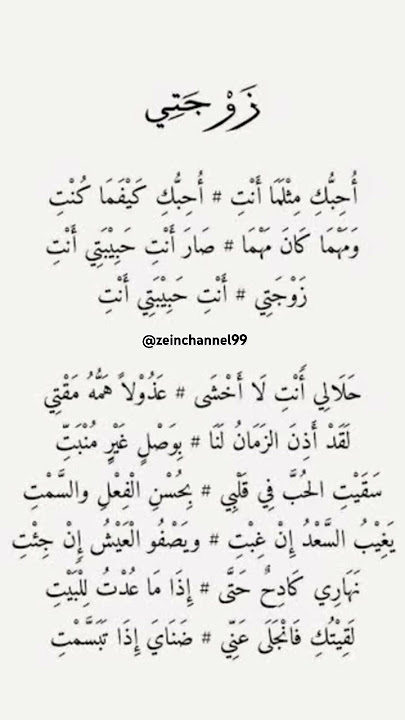 زَوْجَتِي
أُحِبُّكِ مِثْلَمَا أَنْتِ # أُحِبُّكِ كَيْفَمَا كُنْتِ
وَمَهْمَا كَانَ مَهْمَا # صَارَ أَنْتِ حَبِيْبَتِي أَنْتِ
زَوْجَتِي # أَنْتِ حَبِيْبَتِي أَنْتِ
@zeinchannel99
حَلَالِي أَنْتِ لَا أَخْشَى # عَذُوْلاً هَمُّهُ مَقْتِي
لَقَدْ أَذِنَ الزَمَانُ لَنَا # بِوَصْلٍ غَيْرِ مُنْبَتِّ
سَقَيْتِ الحُبَّ فِي قَلْبِي # بِحُسْنِ الْفِعْلِ والسَّمْتِ
يَغِيْبُ السَّعْدُ إِنْ غِبْتِ # ويَصْفُو الْعَيْشُ إِنْ جِئْتِ
نَهَارِي كَادِحٌ حَتَّى # إِذَا مَا عُدْتُ لِلْبَيْتِ
لَقِيْتُكِ فَانْجَلَى عَنِّي # ضَنَايَ إِذَا تَبَسَّمْتِ